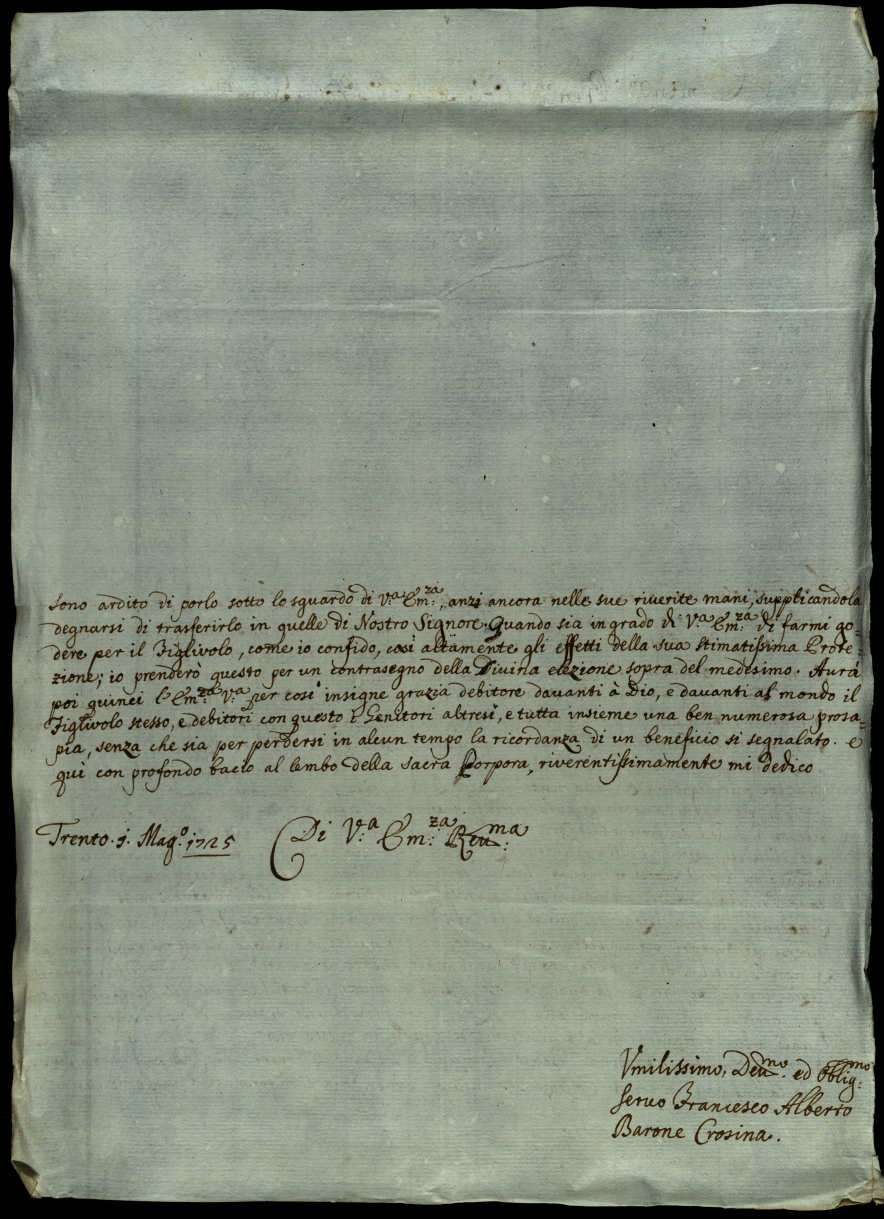 sono ardito di porlo sotto lo sguardo di V.ª Em.za, anzi ancora nelle sue riverite mani, supplicandola
degnarsi di trasferirlo in quelle di Nostro Signore. Quando sia in grado di V.ª Em.za di farmi go-
dere per il Figlivolo, come io confido, così altamente gli effetti della sua stimatissima Prote-
zione; io prenderò questo per un contrasegno della Divina elezione sopra del medesimo. Aurà
poi quinci l'Em.za V.ª per così insigne grazia debitore davanti à Dio, e davanti al mondo il
Figlivolo stesso, e debitori con questo i Genitori altresì, e tutta insieme una ben numerosa prosa-
pia, senza che sia per perdersi in alcun tempo la ricordanza di un beneficio si segnalato. e
quì con profondo bacio al lembo della sacra Porpora, riverentissimamente mi dedico
Trento. j. Mag.º 1725 Di V.ª Em.za Reu.ma
Vmilissimo, Deu.mo ed Obblig.mo
seruo Francesco Alberto
Barone Crosina.